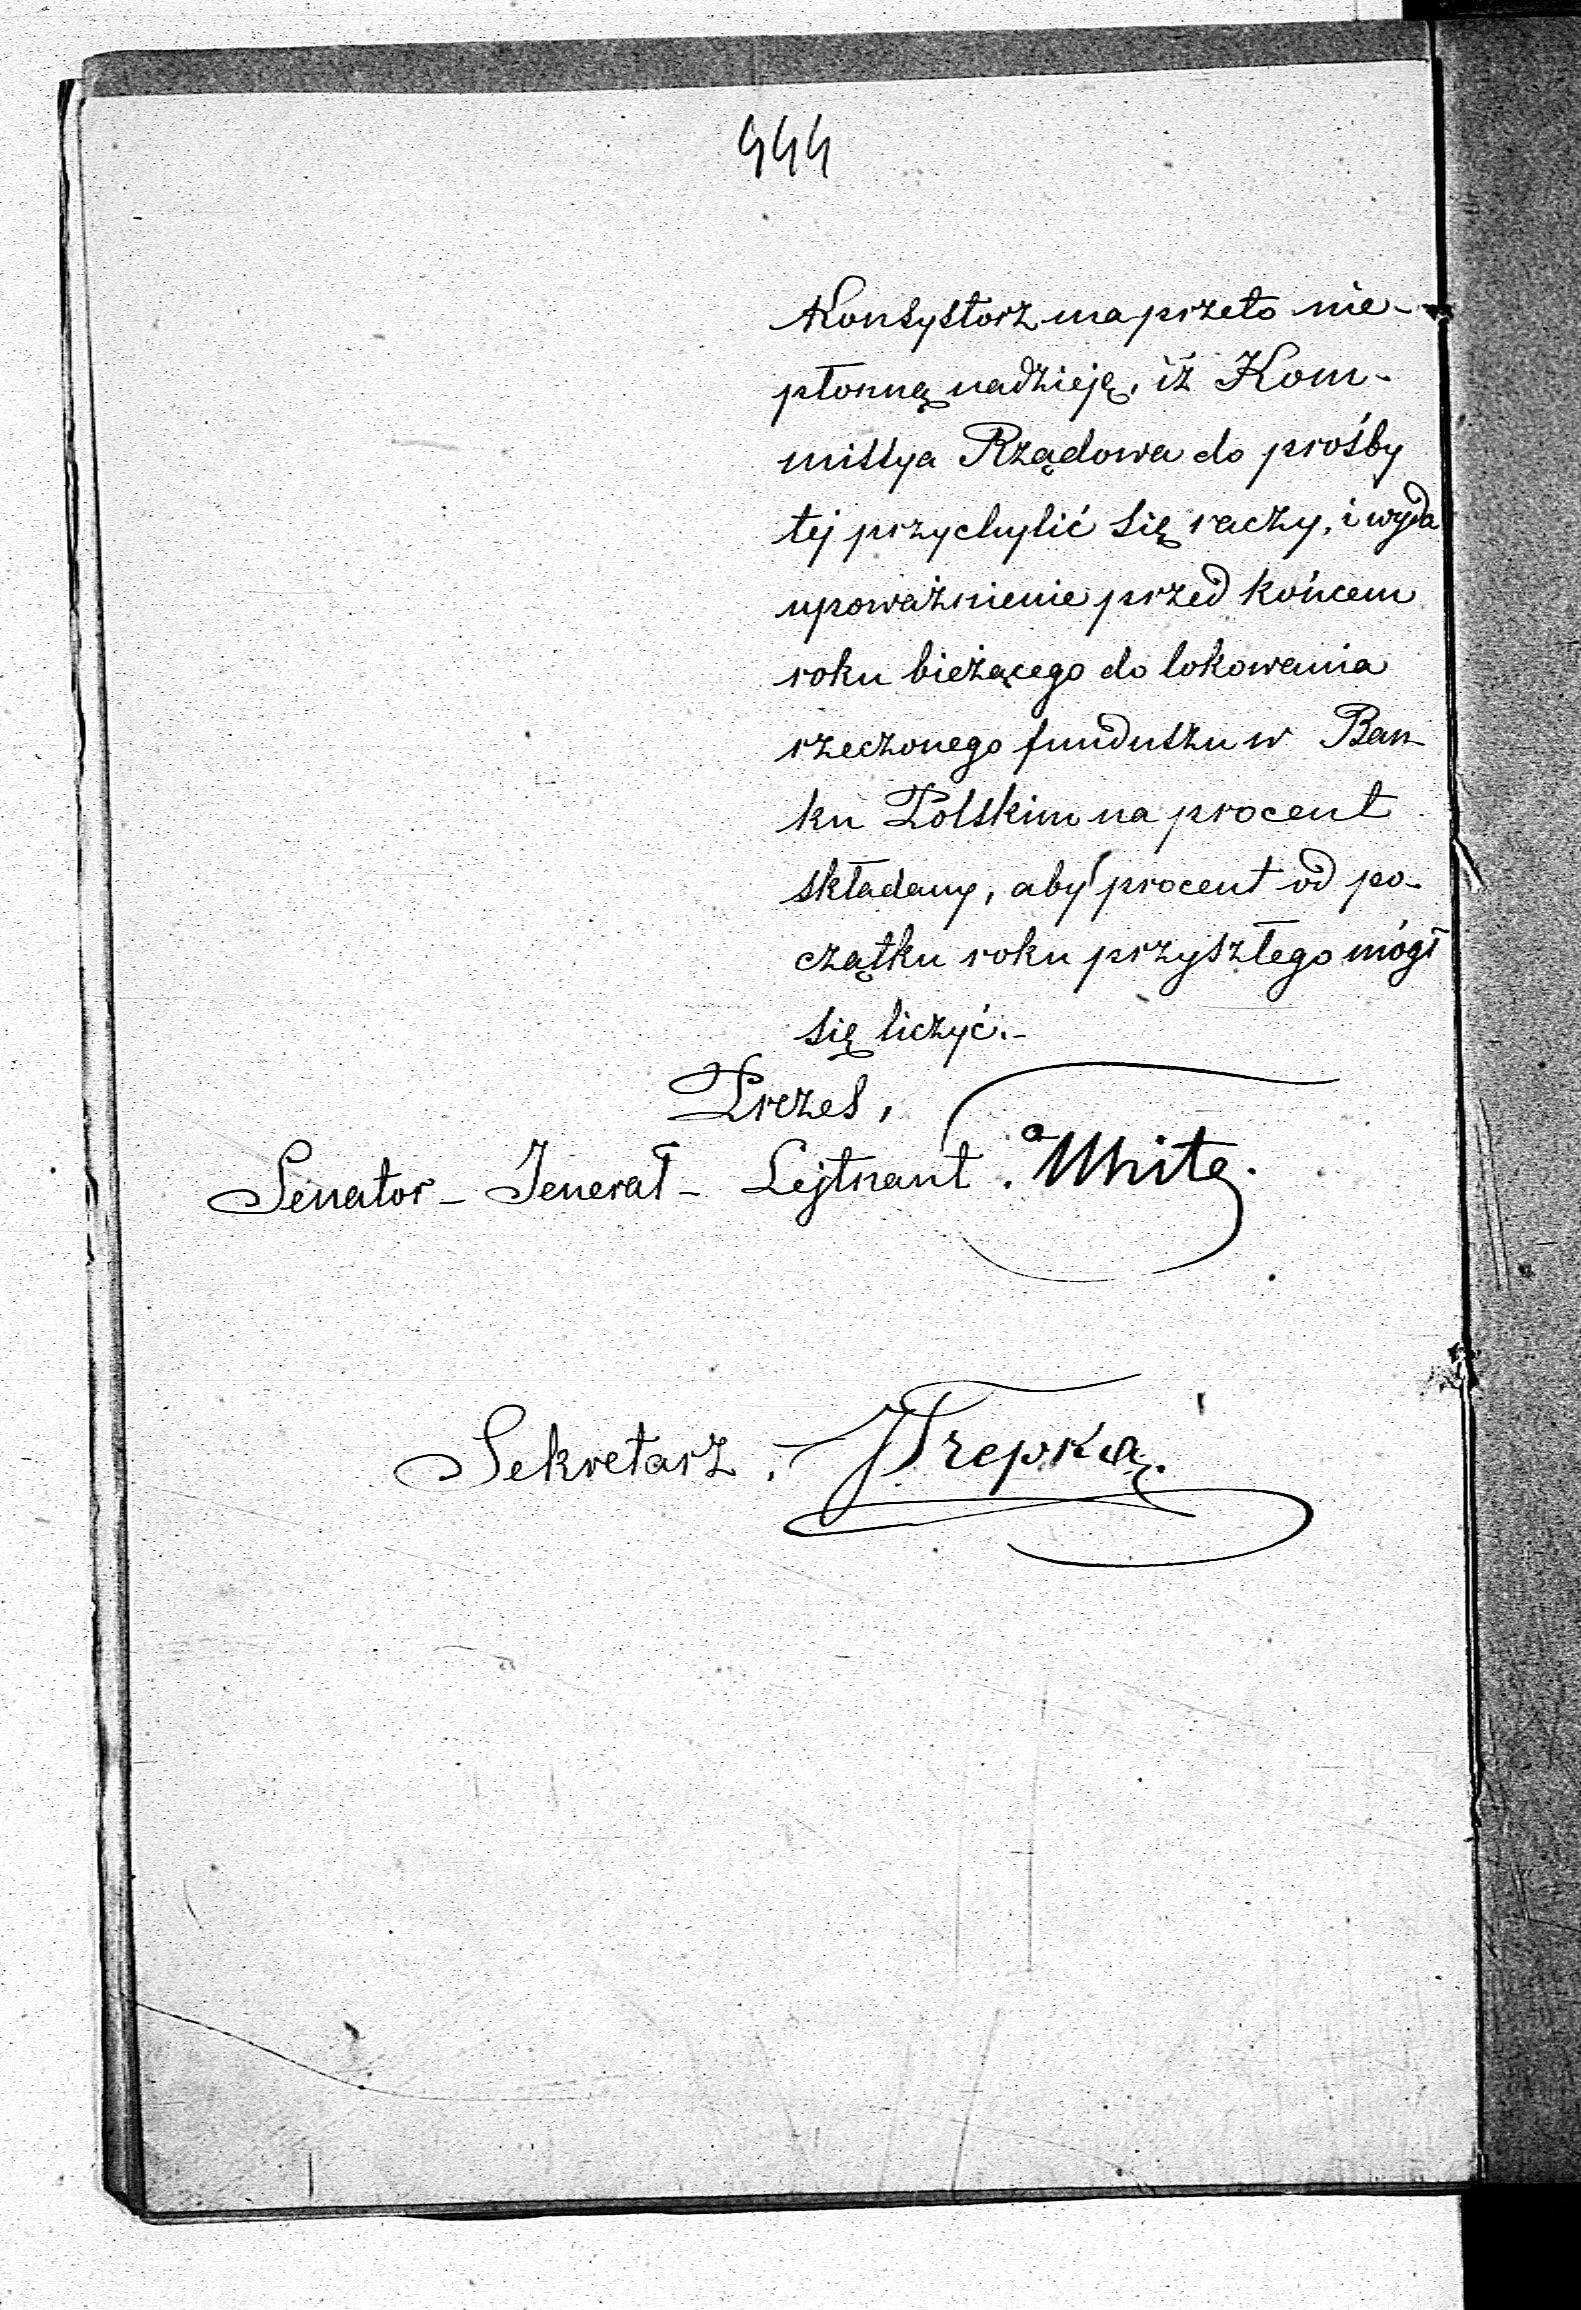 444
Konsystorz ma przeto nie-
płonną nadzieję, iż Kom-
missya Rządowa do prośby
tej przychylić się raczy, i wyda
upoważnienie przed końcem
roku bieżącego do lokowania
rzeczonego funduszu w Ban-
ku Polskim na procent
składany, aby procent od po-
czątku roku przyszłego mógł
się liczyć.-
Prezes,
Senator - Jenerał - Lejtnant. White.
Sekretarz. JTrepka.